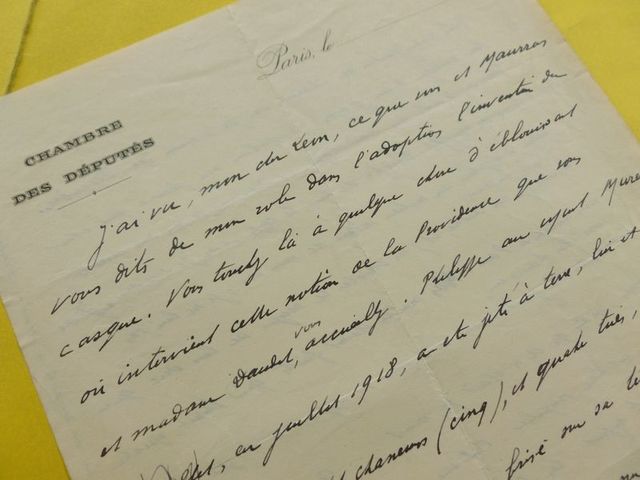 CHAMBRE
DES DÉPUTÉS
Paris, le
J'ai vu, mon cher Léon, ce que vous et Maurras
vous dits de mon role dans l'adoption l'invention du
casque. Vous touchez là à quelque chose d'éblouissant
où intervient cette notion de la Providence que vous
et madame Daudet, vous accueillez. Philippe au
en juillet 1918, a été jeté à terre, lui et
chasseurs (cinq), et quatre tués,
brisé sur sa